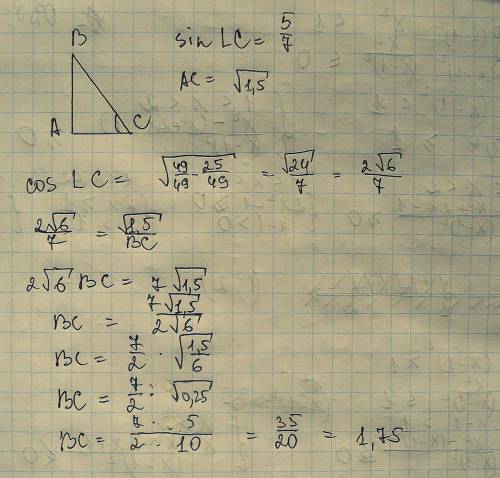 B
sin ∠C = 5/7
AC = √1,5
A C
cos ∠C = √(49/49 - 25/49) = √24/7 = 2√6/7
2√6/7 = √1,5/BC
2√6 BC = 7√1,5
BC = 7√1,5/2√6
BC = 7/2 · √(1,5/6)
BC = 7/2 : √0,25
BC = 7 · 5/2 · 10 = 35/20 = 1,75